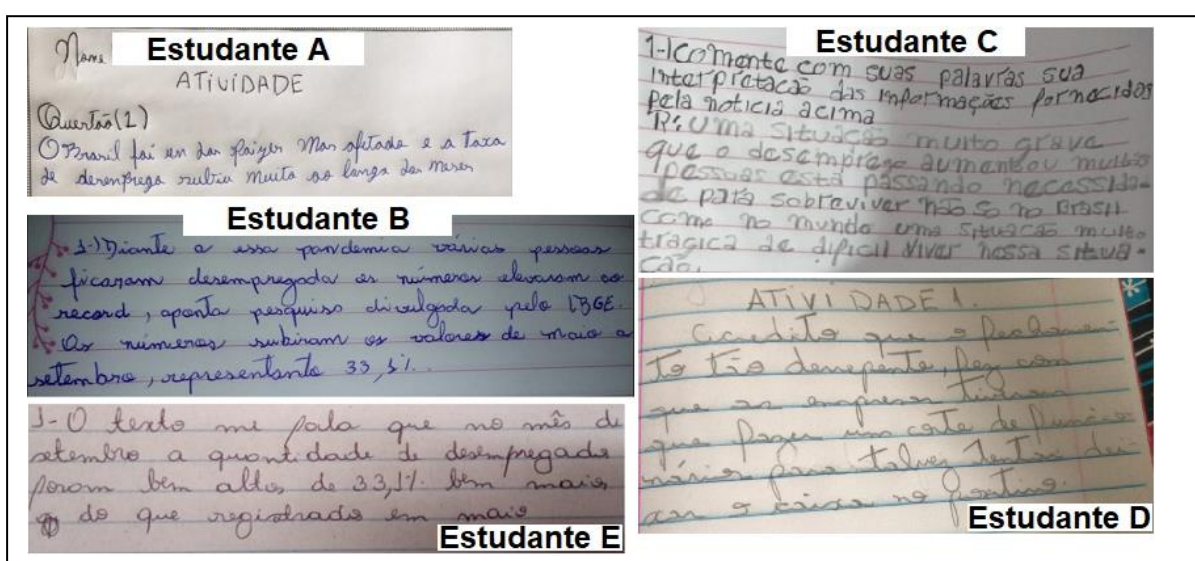 Estudante A
Nome
ATIVIDADE
Questão (1)
O Brasil foi un dos paizes Mas afetado e a Taxa
de desenprego subiu muito ao longo dos meses
Estudante B
1-) Diante a essa pandemia várias pessoas
ficaram desempregada os números elevaram ao
record, aponta pesquisa divulgada pelo IBGE.
Os números subiram os valores de maio a
setembro, representante 33,1%.
1- O texto me fala que no mês de
setembro a quantidade de desempregado
foram bem altos, de 33,1% bem mais
do que registrado em maio
Estudante E
Estudante C
1-) Comente com suas palavras sua
interpretação das informações fornecidas
pela noticia acima
R: Uma situacão muito grave
que o desemprego aumentou muitos
pessoas está passando necessida-
de para sobreviver não so no Brasil
como no mundo uma situacão muito
tragica de dificil viver nossa situa-
cão.
ATIVIDADE 1
Acredito que o fechamen
to tão derepente, fez com
que as empresas tinham
que fazer um corte de funcio
nários para talvez tentar dei
xar o caixa no positivo.
Estudante D